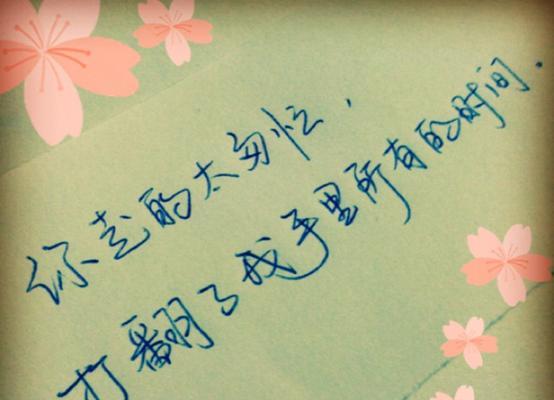 你走的太匆忙，
打翻了我手里所有的时间.